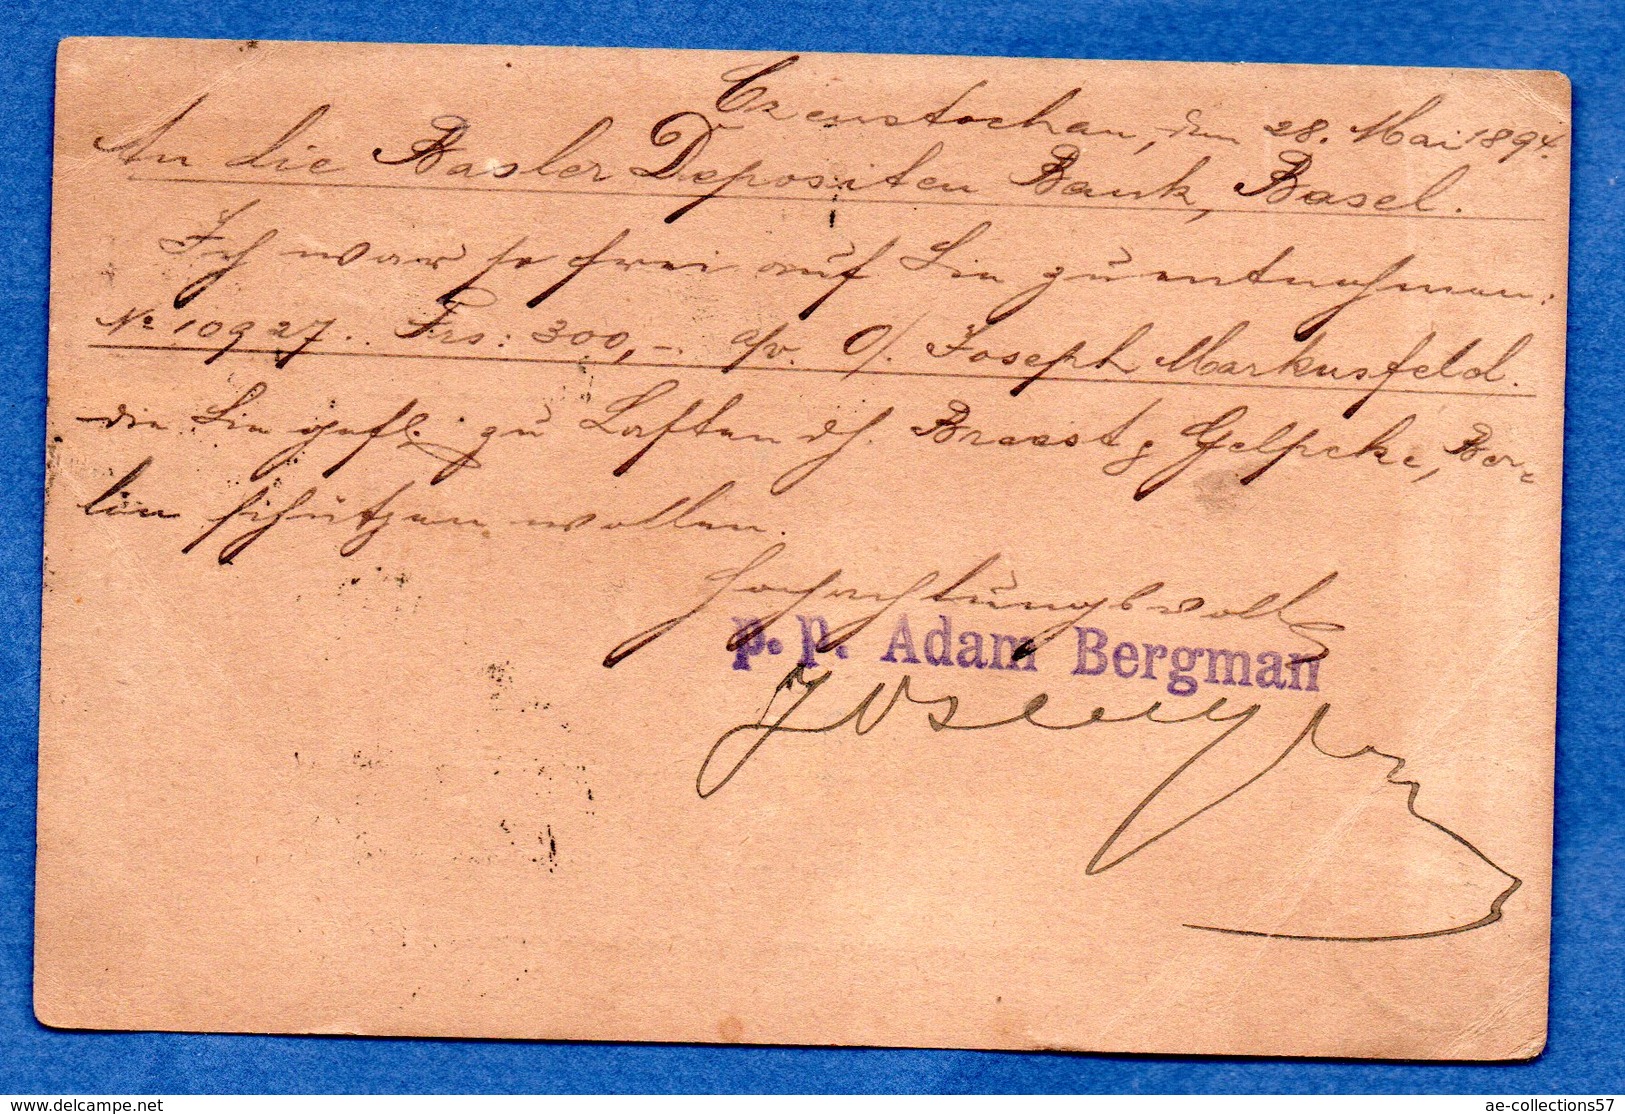 Czenstochau, den 28. Mai 1894.
An die Basler Depositen Bank, Basel.
Ich war so frei auf Sie zu entnehmen:
No 10927.. Frs: 300,-. a/v. O/. Joseph Markusfeld.
die Sie gefl. zu Lasten d/. Breest & Gelpcke, Ber-
lin schützen wollen.
Hochachtungsvoll
p. p. Adam Bergman
www.delcampe.net
ae-collections57